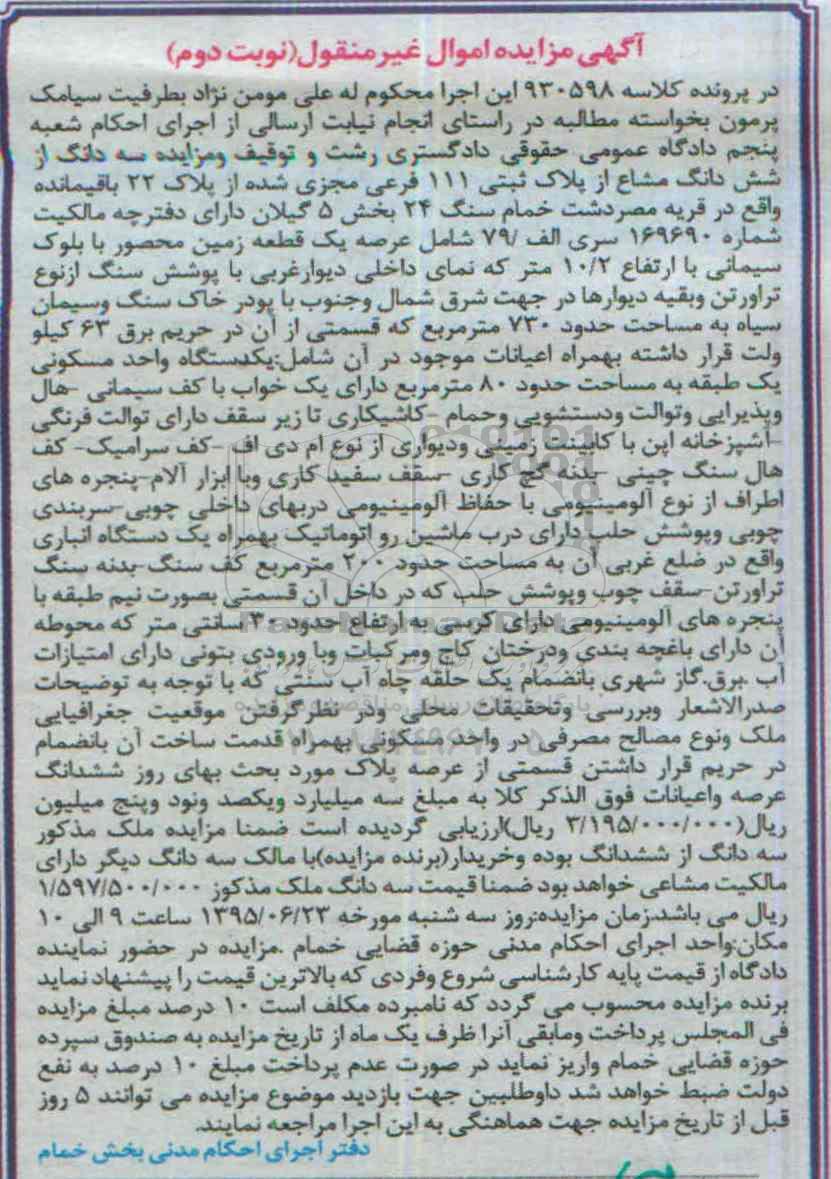 آگهی مزایده اموال غیر منقول(نوبت دوم)
در پرونده کلاسه ۹۳۰۵۹۸ این اجرا محکوم له علی مومن نژاد بطرفیت سیامک
پرمون بخواسته مطالبه در راستای انجام نیابت ارسالی از اجرای احکام شعبه
پنجم دادگاه عمومی حقوقی دادگستری رشت و توقیف ومزایده سه دانگ از
شش دانگ مشاع از پلاک ثبتی ۱۱۱ فرعی مجزی شده از پلاک ۲۲ باقیمانده
واقع در قریه مصردشت خمام سنگ ۲۴ بخش ۵ گیلان دارای دفترچه مالکیت
شماره ۱۶۹۶۹۰ سری الف /۷۹ شامل عرصه یک قطعه زمین محصور با بلوک
سیمانی با ارتفاع ۱۰/۲ متر که نمای داخلی دیوارغربی با پوشش سنگ ازنوع
تراورتن وبقیه دیوارها در جهت شرق شمال وجنوب با پودر خاک سنگ وسیمان
سیاه به مساحت حدود ۷۳۰ مترمربع که قسمتی از آن در حریم برق ۶۳ کیلو
ولت قرار داشته بهمراه اعیانات موجود در آن شامل:یکدستگاه واحد مسکونی
یک طبقه به مساحت حدود ۸۰ مترمربع دارای یک خواب با کف سیمانی -هال
وپذیرایی وتوالت ودستشویی وحمام -کاشیکاری تا زیر سقف دارای توالت فرنگی
-آشپزخانه اپن با کابینت زمینی ودیواری از نوع ام دی اف -کف سرامیک- کف
هال سنگ چینی -بدنه گچ کاری -سقف سفید کاری وبا ابزار آلام-پنجره های
اطراف از نوع آلومینیومی با حفاظ آلومینیومی دربهای داخلی چوبی-سربندی
چوبی وپوشش حلب دارای درب ماشین رو اتوماتیک بهمراه یک دستگاه انباری
واقع در ضلع غربی آن به مساحت حدود ۲۰۰ مترمربع کف سنگ-بدنه سنگ
تراورتن-سقف چوب وپوشش حلب که در داخل آن قسمتی بصورت نیم طبقه با
پنجره های آلومینیومی دارای کرسی به ارتفاع حدود ۳۰ سانتی متر که محوطه
آن دارای باغچه بندی ودرختان کاج ومرکبات وبا ورودی بتونی دارای امتیازات
آب .برق.گاز شهری بانضمام یک حلقه چاه آب سنتی که با توجه به توضیحات
صدرالاشعار وبررسی وتحقیقات محلی ودر نظرگرفتن موقعیت جغرافیایی
ملک ونوع مصالح مصرفی در واحد مسکونی بهمراه قدمت ساخت آن بانضمام
در حریم قرار داشتن قسمتی از عرصه پلاک مورد بحث بهای روز ششدانگ
عرصه واعیانات فوق الذکر کلا به مبلغ سه میلیارد ویکصد ونود وپنج میلیون
ریال(۳/۱۹۵/۰۰۰/۰۰۰ ریال)ارزیابی گردیده است ضمنا مزایده ملک مذکور
سه دانگ از ششدانگ بوده وخریدار(برنده مزایده)با مالک سه دانگ دیگر دارای
مالکیت مشاعی خواهد بود ضمنا قیمت سه دانگ ملک مذکوز ۱/۵۹۷/۵۰۰/۰۰۰
ریال می باشد.زمان مزایده:روز سه شنبه مورخه ۱۳۹۵/۰۶/۲۳ ساعت ۹ الی ۱۰
مکان:واحد اجرای احکام مدنی حوزه قضایی خمام .مزایده در حضور نماینده
دادگاه از قیمت پایه کارشناسی شروع وفردی که بالاترین قیمت را پیشنهاد نماید
برنده مزایده محسوب می گردد که نامبرده مکلف است ۱۰ درصد مبلغ مزایده
فی المجلس پرداخت ومابقی آنرا ظرف یک ماه از تاریخ مزایده به صندوق سپرده
حوزه قضایی خمام واریز نماید در صورت عدم پرداخت مبلغ ۱۰ درصد به نفع
دولت ضبط خواهد شد داوطلبین جهت بازدید موضوع مزایده می توانند ۵ روز
قبل از تاریخ مزایده جهت هماهنگی به این اجرا مراجعه نمایند.
دفتر اجرای احکام مدنی بخش خمام